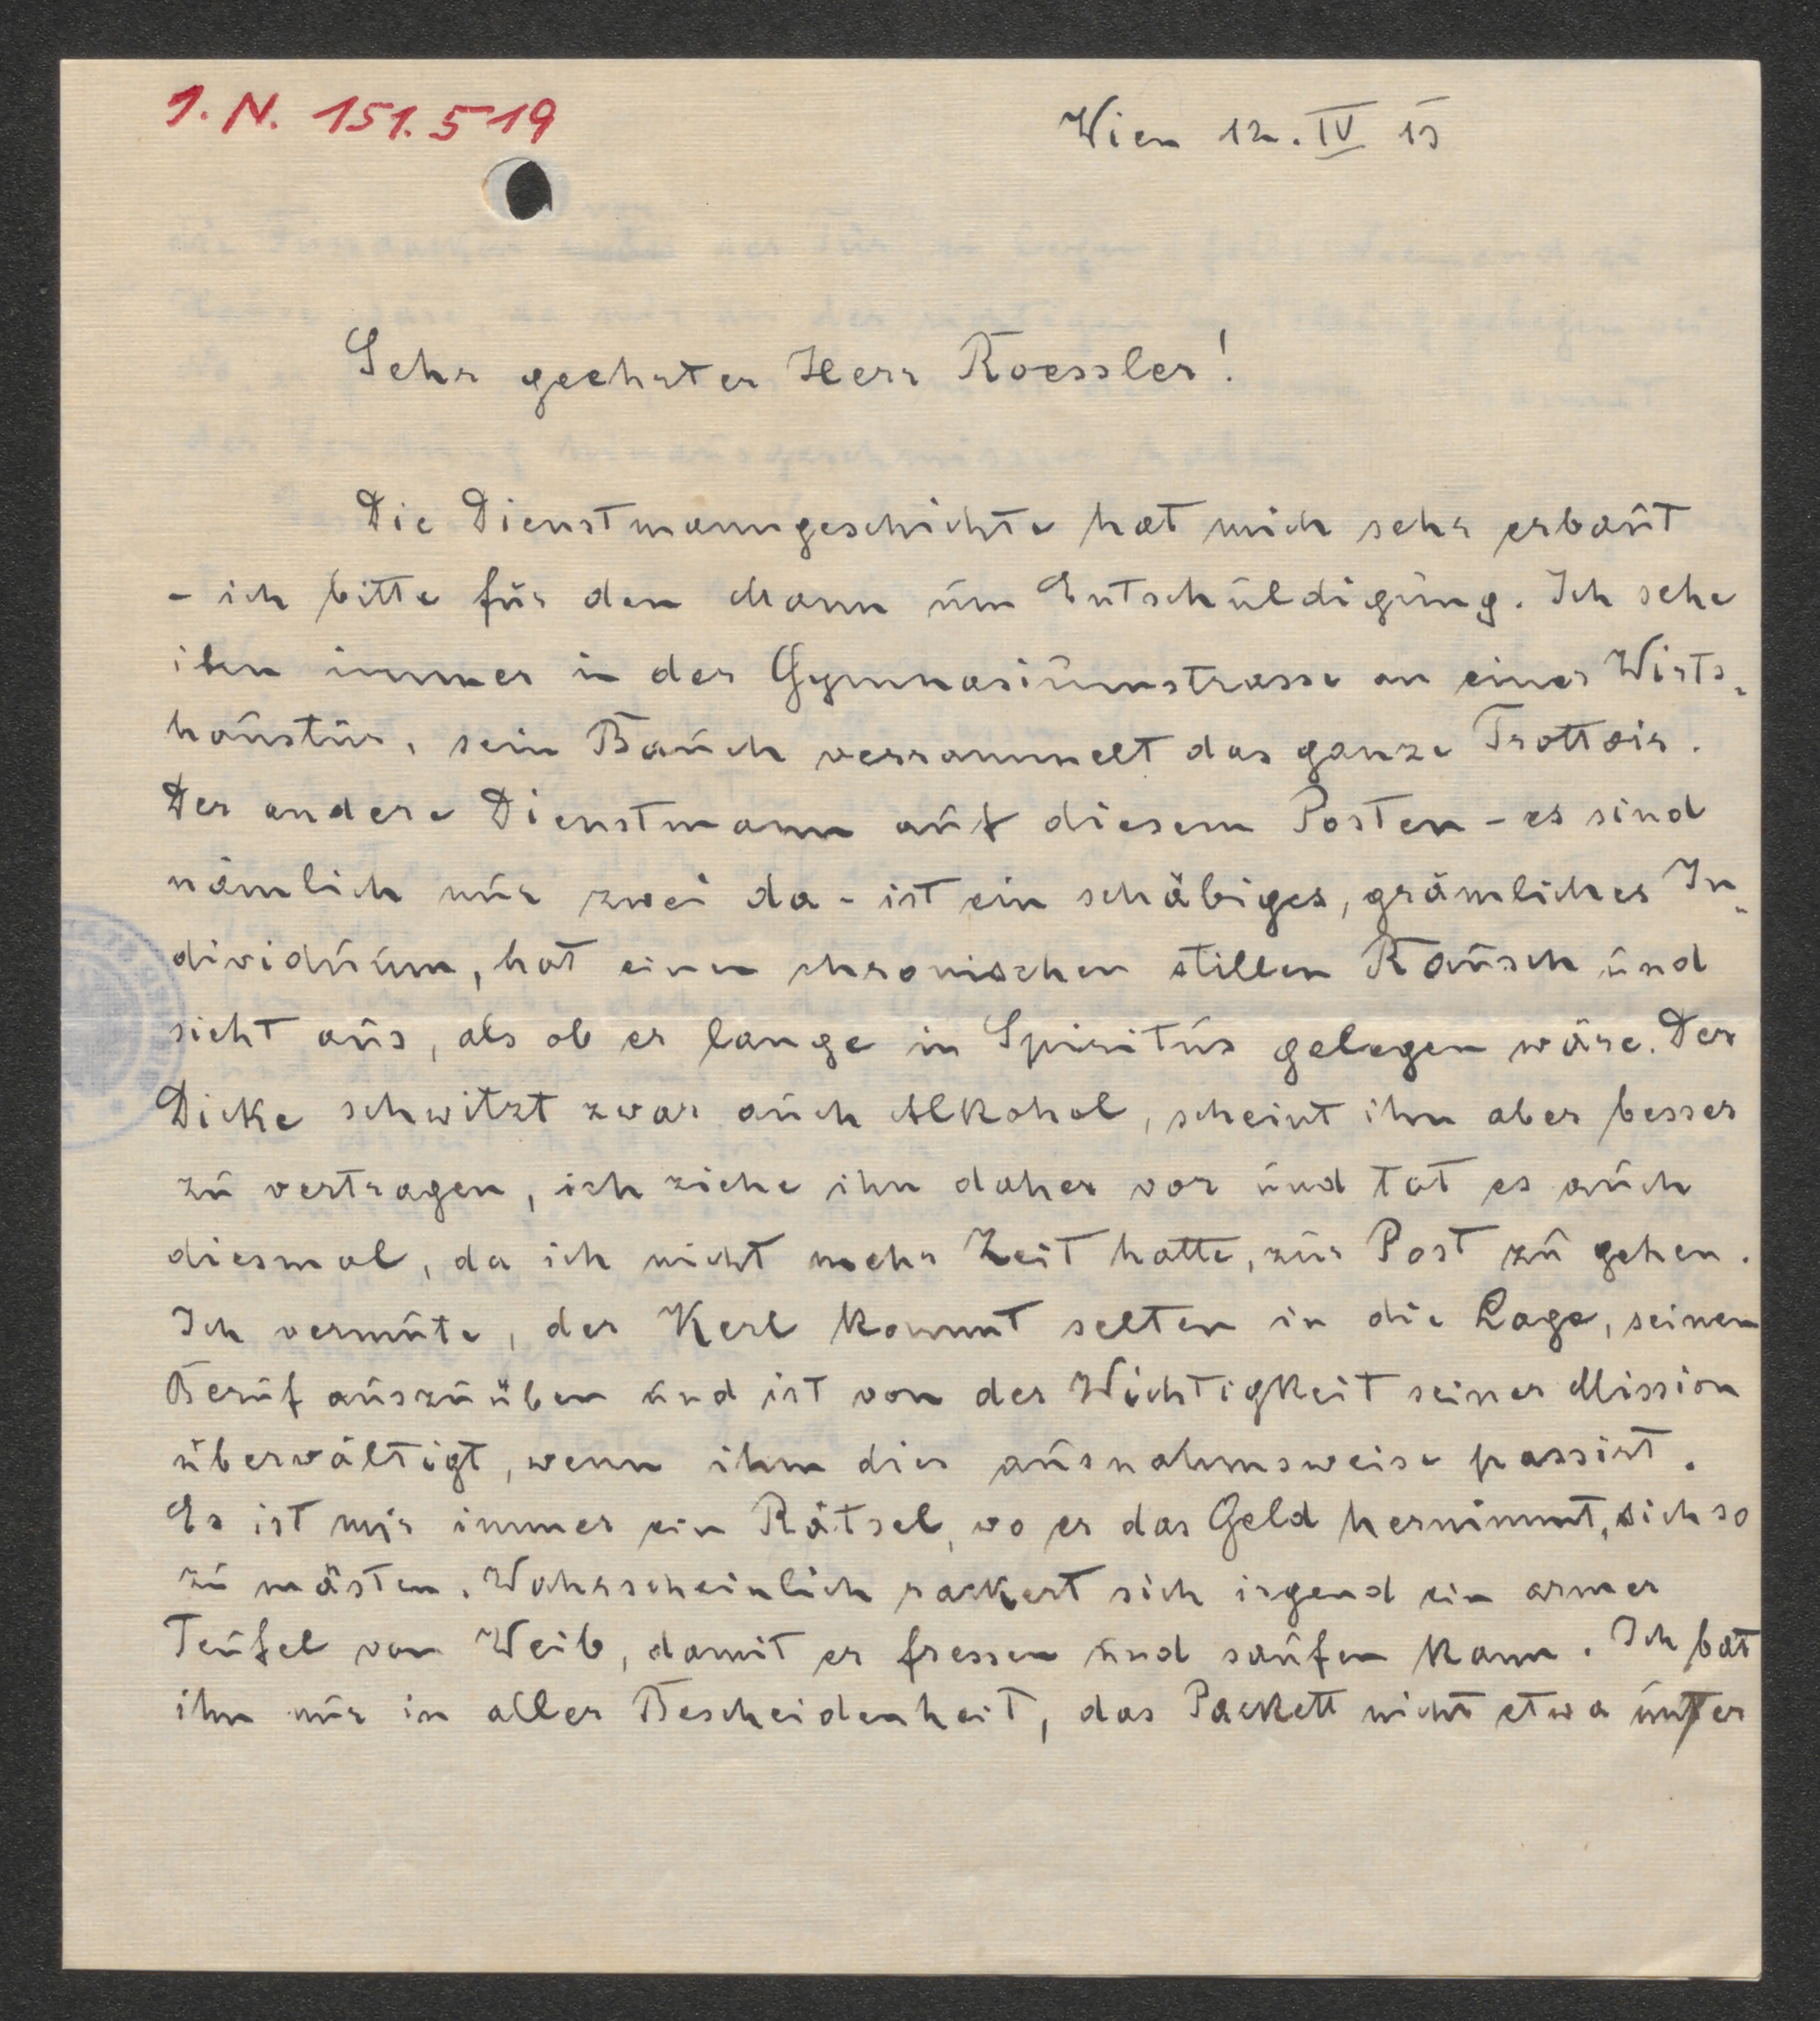 I. N. 151.519
Wien 12. IV 15
Sehr geehrter Herr Roessler!
Die Dienstmanngeschichte hat mich sehr erbaut
- ich bitte für den Mann um Entschuldigung. Ich sehe
ihn immer in der Gymnasiumstrasse an einer Wirts-
haustür, sein Bauch verrammelt das ganze Trottoir.
Der andere Dienstmann auf diesem Posten - es sind
nämlich nur zwei da - ist ein schäbiges, grämliches In-
dividuum, hat einen chronischen stillen Rausch und
sieht aus, als ob er lange in Spiritus gelegen wäre. Der
Dicke schwitzt zwar auch Alkohol, scheint ihn aber besser
zu vertragen, ich ziehe ihn daher vor und tat es auch
diesmal, da ich nicht mehr Zeit hatte, zur Post zu gehen.
Ich vermute, der Kerl kommt selten in die Lage, seinen
Beruf auszuüben und ist von der Wichtigkeit seiner Mission
überwältigt, wenn ihm dies ausnahmsweise passirt.
Es ist mir immer ein Rätsel, wo er das Geld hernimmt, sich so
zu mästen. Wahrscheinlich rackert sich irgend ein armer
Teufel von Weib, damit er fressen und saufen kann. Ich bat
ihn nur in aller Bescheidenheit, das Packett nicht etwa unter